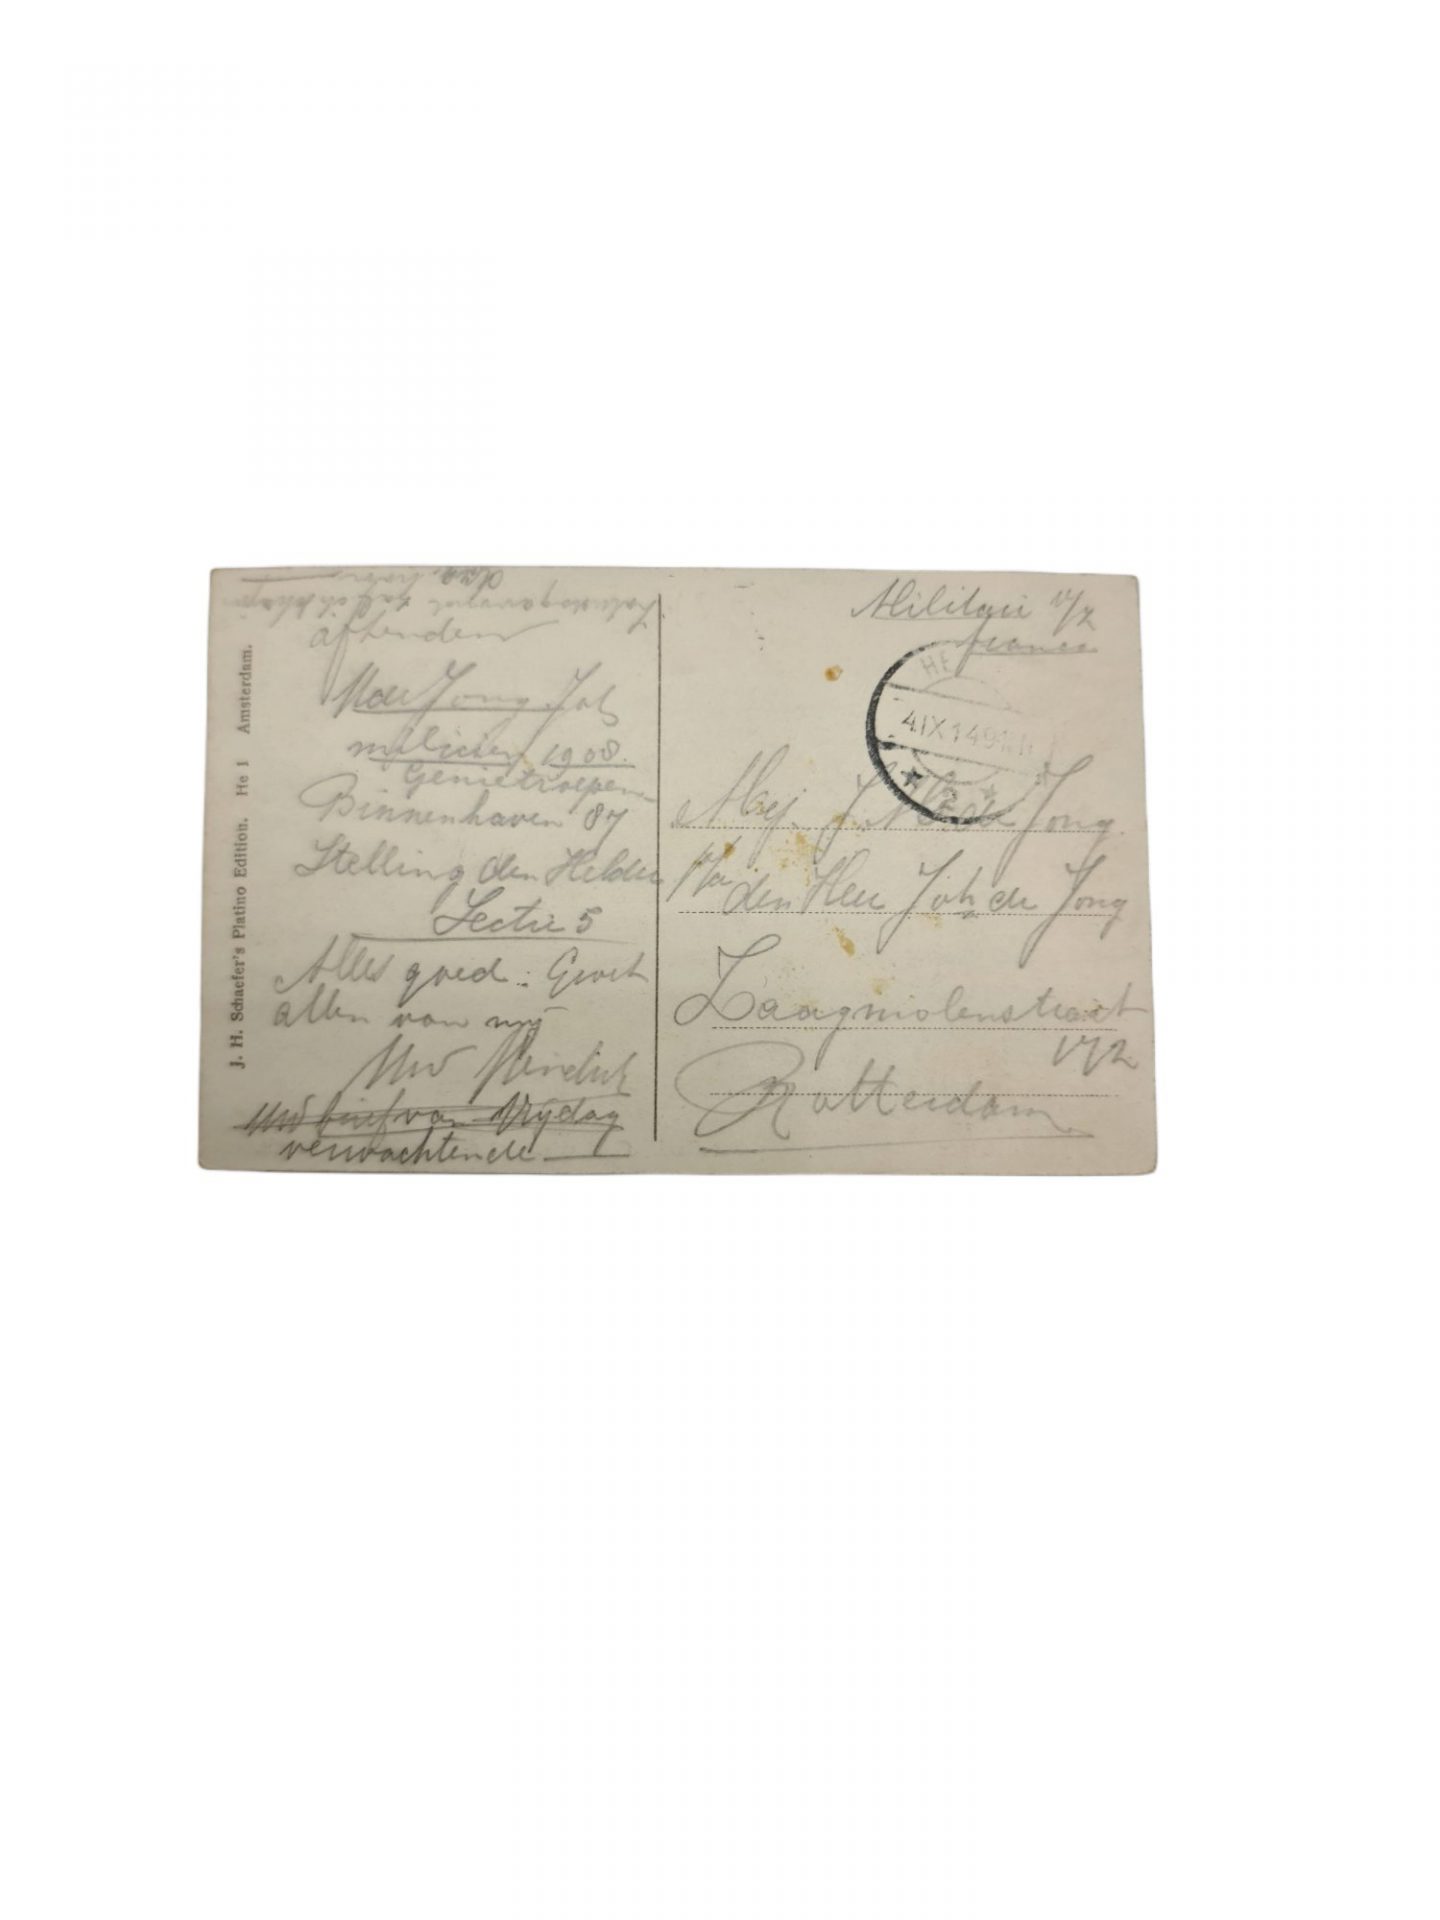 afzender
M de Jong Joh
milicien 1908.
Genietroepen
Binnenhaven 87
Stelling den Helder
Sectie 5
Alles goed: Groet
allen van mij
Uw Hendrik
Uw brief van Vrijdag
verwachtende
J. H. Schaefer's Platino Edition. He 1 Amsterdam.
Militair
franco
HE
4.IX.14
Mej. de Jong.
p/a den Heer Joh de Jong
Zaagmolenstraat
172
Rotterdam